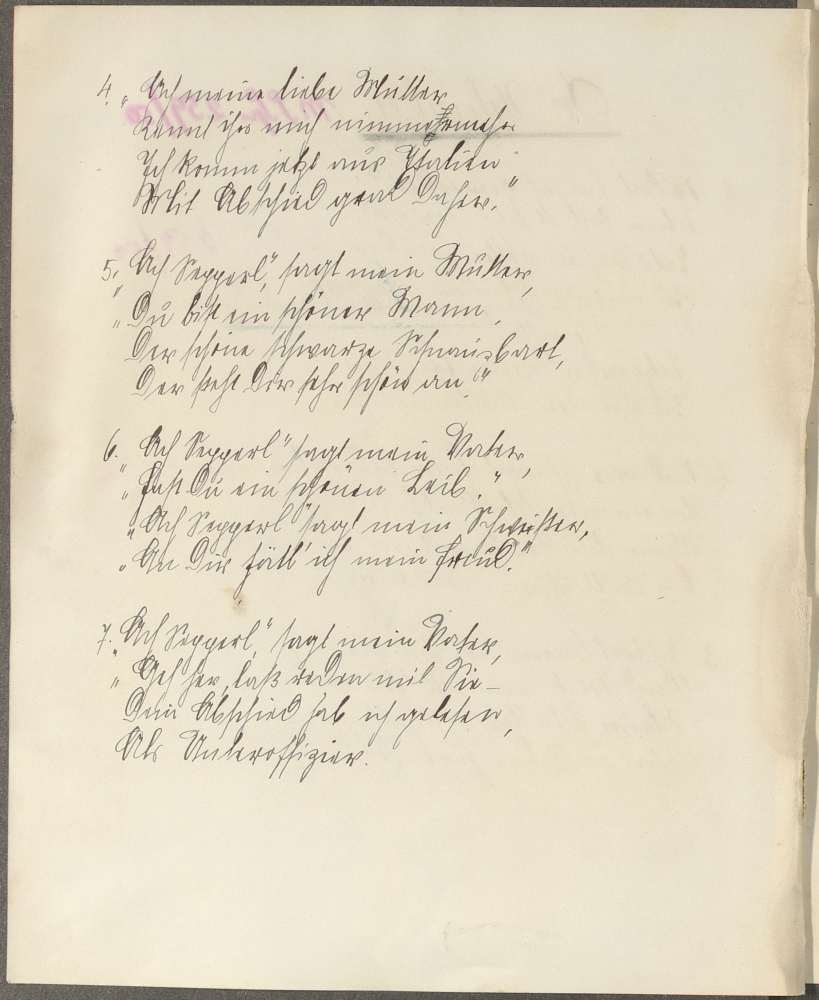 4. „Ach meine liebe Mutter
Kennt ihr mich nimmermehr
Ich komm jetzt aus Italien
Mit Abschied grad daher.“
5. „Ach Sepperl“, sagt mein Mutter,
„Du bist ein schöner Mann,
Der schöne schwarze Schnauzbart,
Der steht Dir sehr schön an.“
6. „Ach Sepperl“ sagt mein Vater,
„Hast Du ein schönen Leib.“
„Ach Sepperl“ sagt mein Schwester,
„An Dir hätt' ich mein Freud.“
7. „Ach Sepperl“, sagt mein Vater,
„Geh her, laß reden mit Die –
Dein Abschied hab ich gelesen,
Als Unteroffizier.